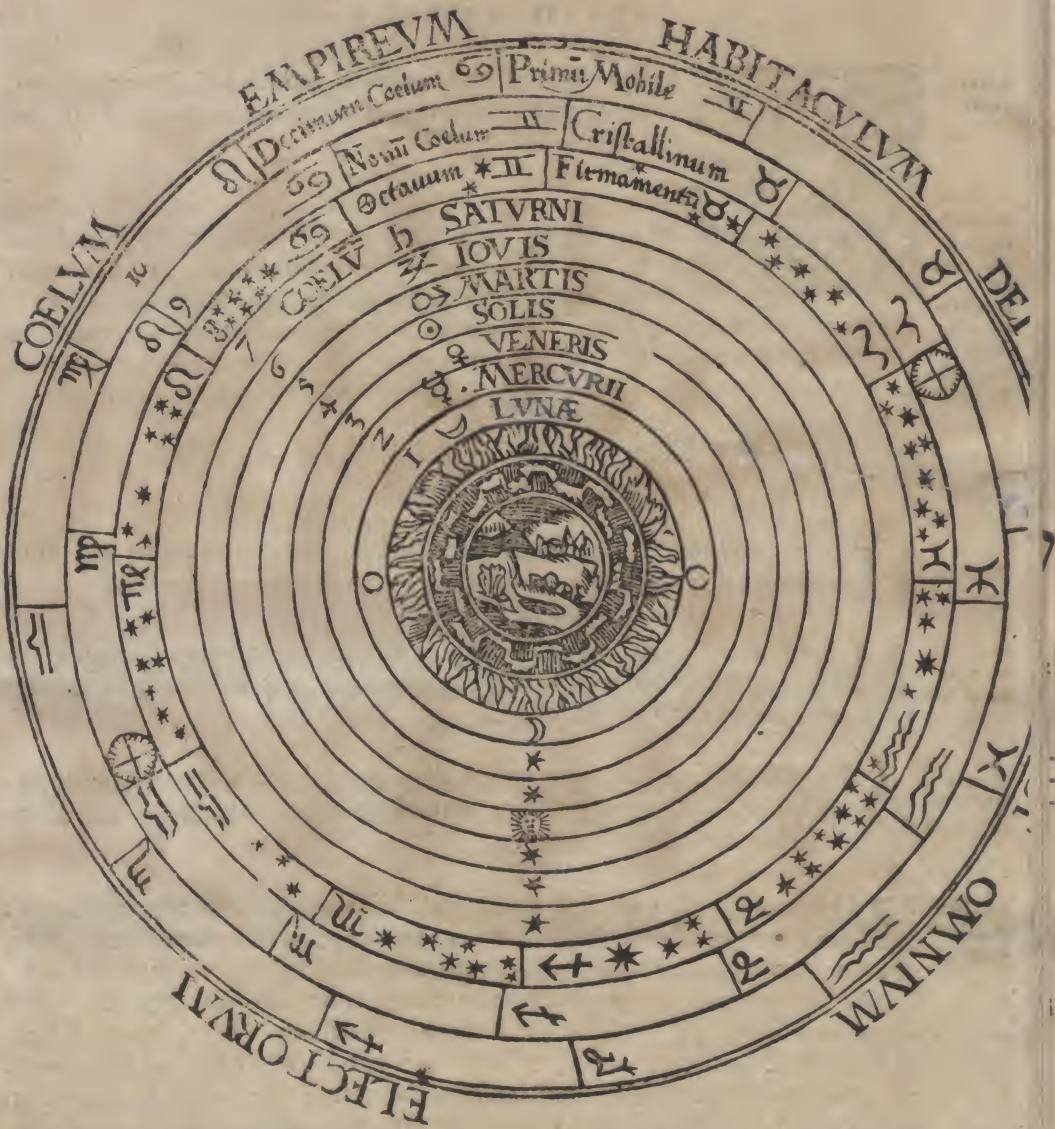 COELVM EMPIREVM HABITACVLVM DEI
OMNIVM
ELECTORVM
Decimum Coelum ♋ Primū Mobile ♊
♋ Nonū Coelum ♊ Cristallinum ♉
♋ Octauum ♊ Firmamentū ♉
7 COELV̄ ♄ SATVRNI
6 ♃ IOVIS
5 ♂ MARTIS
4 ☉ SOLIS
3 ♀ VENERIS
2 ☿ MERCVRII
1 ☽ LVNÆ
10
9
8